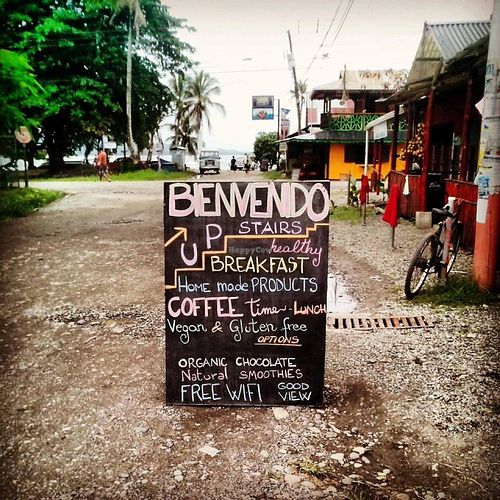 BIENVENIDO
UP STAIRS
healthy
BREAKFAST
HOME made PRODUCTS
COFFEE time~-LUNCH
Vegan & Gluten free
OPTIONS
ORGANIC CHOCOLATE
Natural SMOOTHIES
FREE WIFI GOOD VIEW
HappyCow